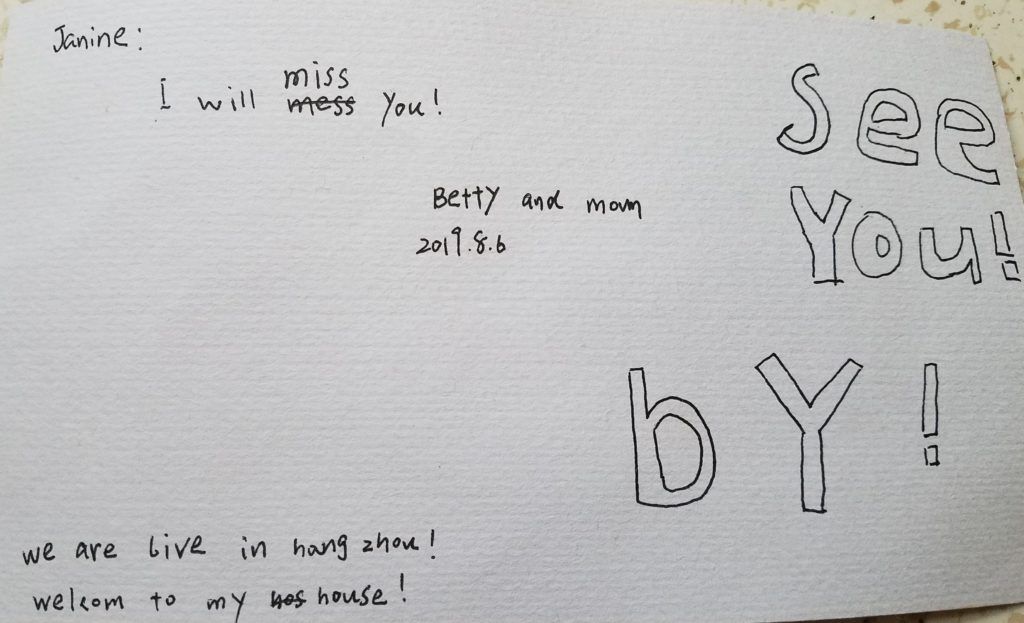 Janine:
I will mess miss you!
Betty and mom
2019.8.6
See
You!
bY!
we are live in hang zhou!
welcom to my hos house!